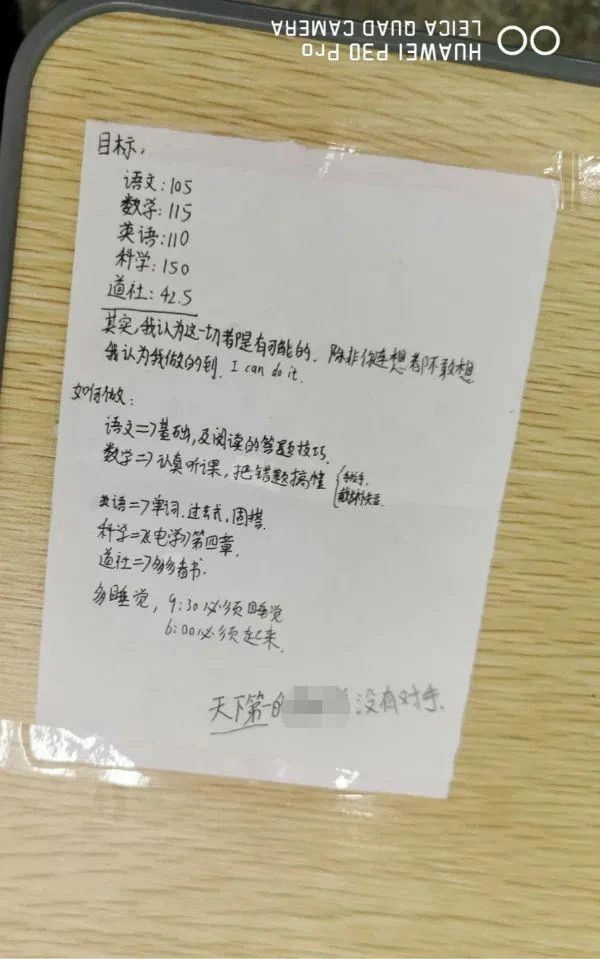 HUAWEI P30 Pro
LEICA QUAD CAMERA
目标,
语文:105
数学:115
英语:110
科学:150
道社:42.5
其实,我认为这一切都是有可能的. 除非你连想都不敢想
我认为我做的到. I can do it.
如何做:
语文=>基础,及阅读的答题技巧.
数学=>认真听课,把错题搞懂
英语=>单词.过去式,周楷.
科学=>《电学》第四章.
道社=>多多看书.
多睡觉, 9:30必须睡觉
6:00必须起来.
天下第一的 没有对手.